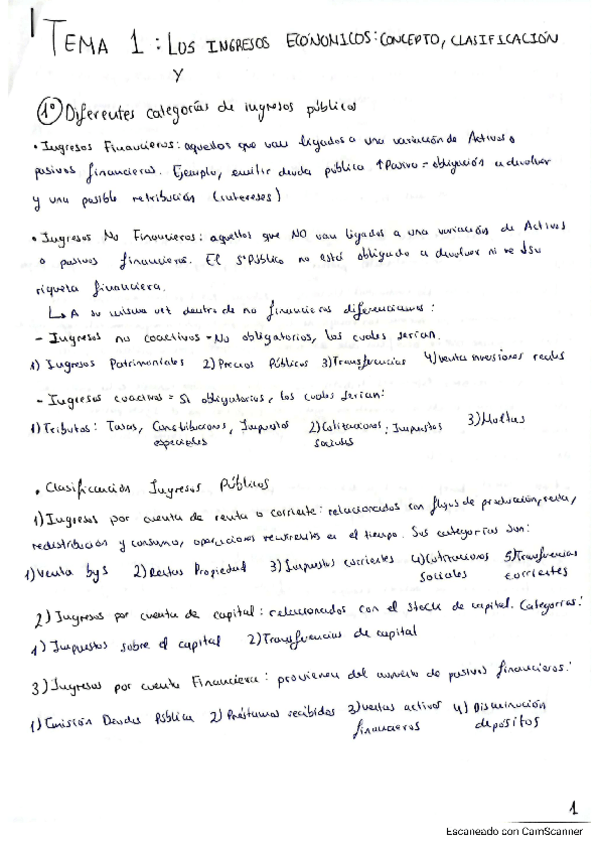 TEMA 1: LOS INGRESOS ECONOMICOS: CONCEPTO, CLASIFICACIÓN
Y
1º Diferentes categorías de ingresos públicos
• Ingresos Financieros: aquellos que van ligados a una variación de Activos o
pasivos financieros. Ejemplo, emitir deuda pública ↑Pasivo = obligación a devolver
y una posible retribución (intereses)
• Ingresos No Financieros: aquellos que NO van ligados a una variación de Activos
o pasivos financieros. El S°Público no está obligado a devolver ni ve ↓su
riqueza financiera.
↳ A su misma vez dentro de no financieros diferenciamos:
- Ingresos no coactivos = No obligatorios, los cuales serían.
1) Ingresos Patrimoniales 2) Precios Públicos 3) Transferencias 4) Venta inversiones reales
- Ingresos coactivos = Si obligatorios, los cuales serían:
1) Tributos: Tasas, Contribuciones, Impuestos 2) Cotizaciones, Impuestos 3) Multas
especiales sociales
• Clasificación Ingresos Públicos
1) Ingresos por cuenta de renta o corriente: relacionados con flujos de producción, renta,
redistribución y consumo, operaciones recurrentes en el tiempo. Sus categorías son:
1) Venta bys 2) Rentas Propiedad 3) Impuestos corrientes 4) Cotizaciones 5) Transferencias
sociales corrientes
2) Ingresos por cuenta de capital: relacionados con el stock de capital. Categorías:
1) Impuestos sobre el capital 2) Transferencias de capital
3) Ingresos por cuenta Financiera: provienen del aumento de pasivos financieros:
1) Emisión Deuda Pública 2) Préstamos recibidos 3) Ventas activos 4) Disminución
financieros depósitos
1
Escaneado con CamScanner